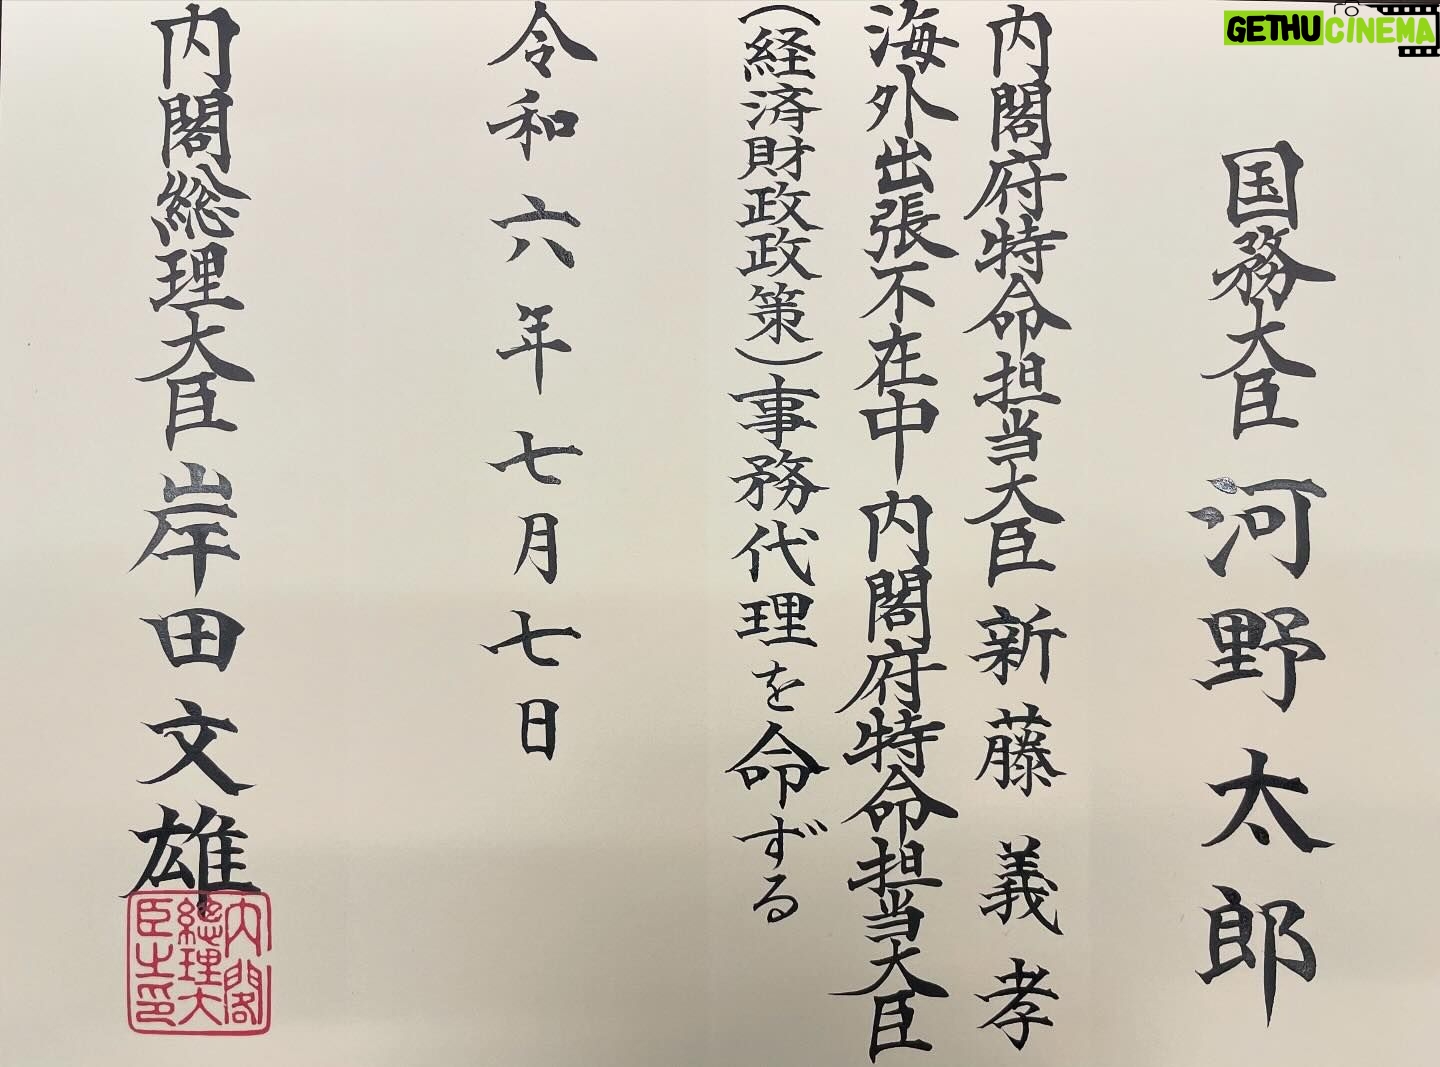 国務大臣 河野太郎
内閣府特命担当大臣 新藤義孝
海外出張不在中 内閣府特命担当大臣
(経済財政政策)事務代理を命ずる
令和六年七月七日
内閣総理大臣 岸田文雄
内閣
総理大
臣之印
GETHUCINEMA